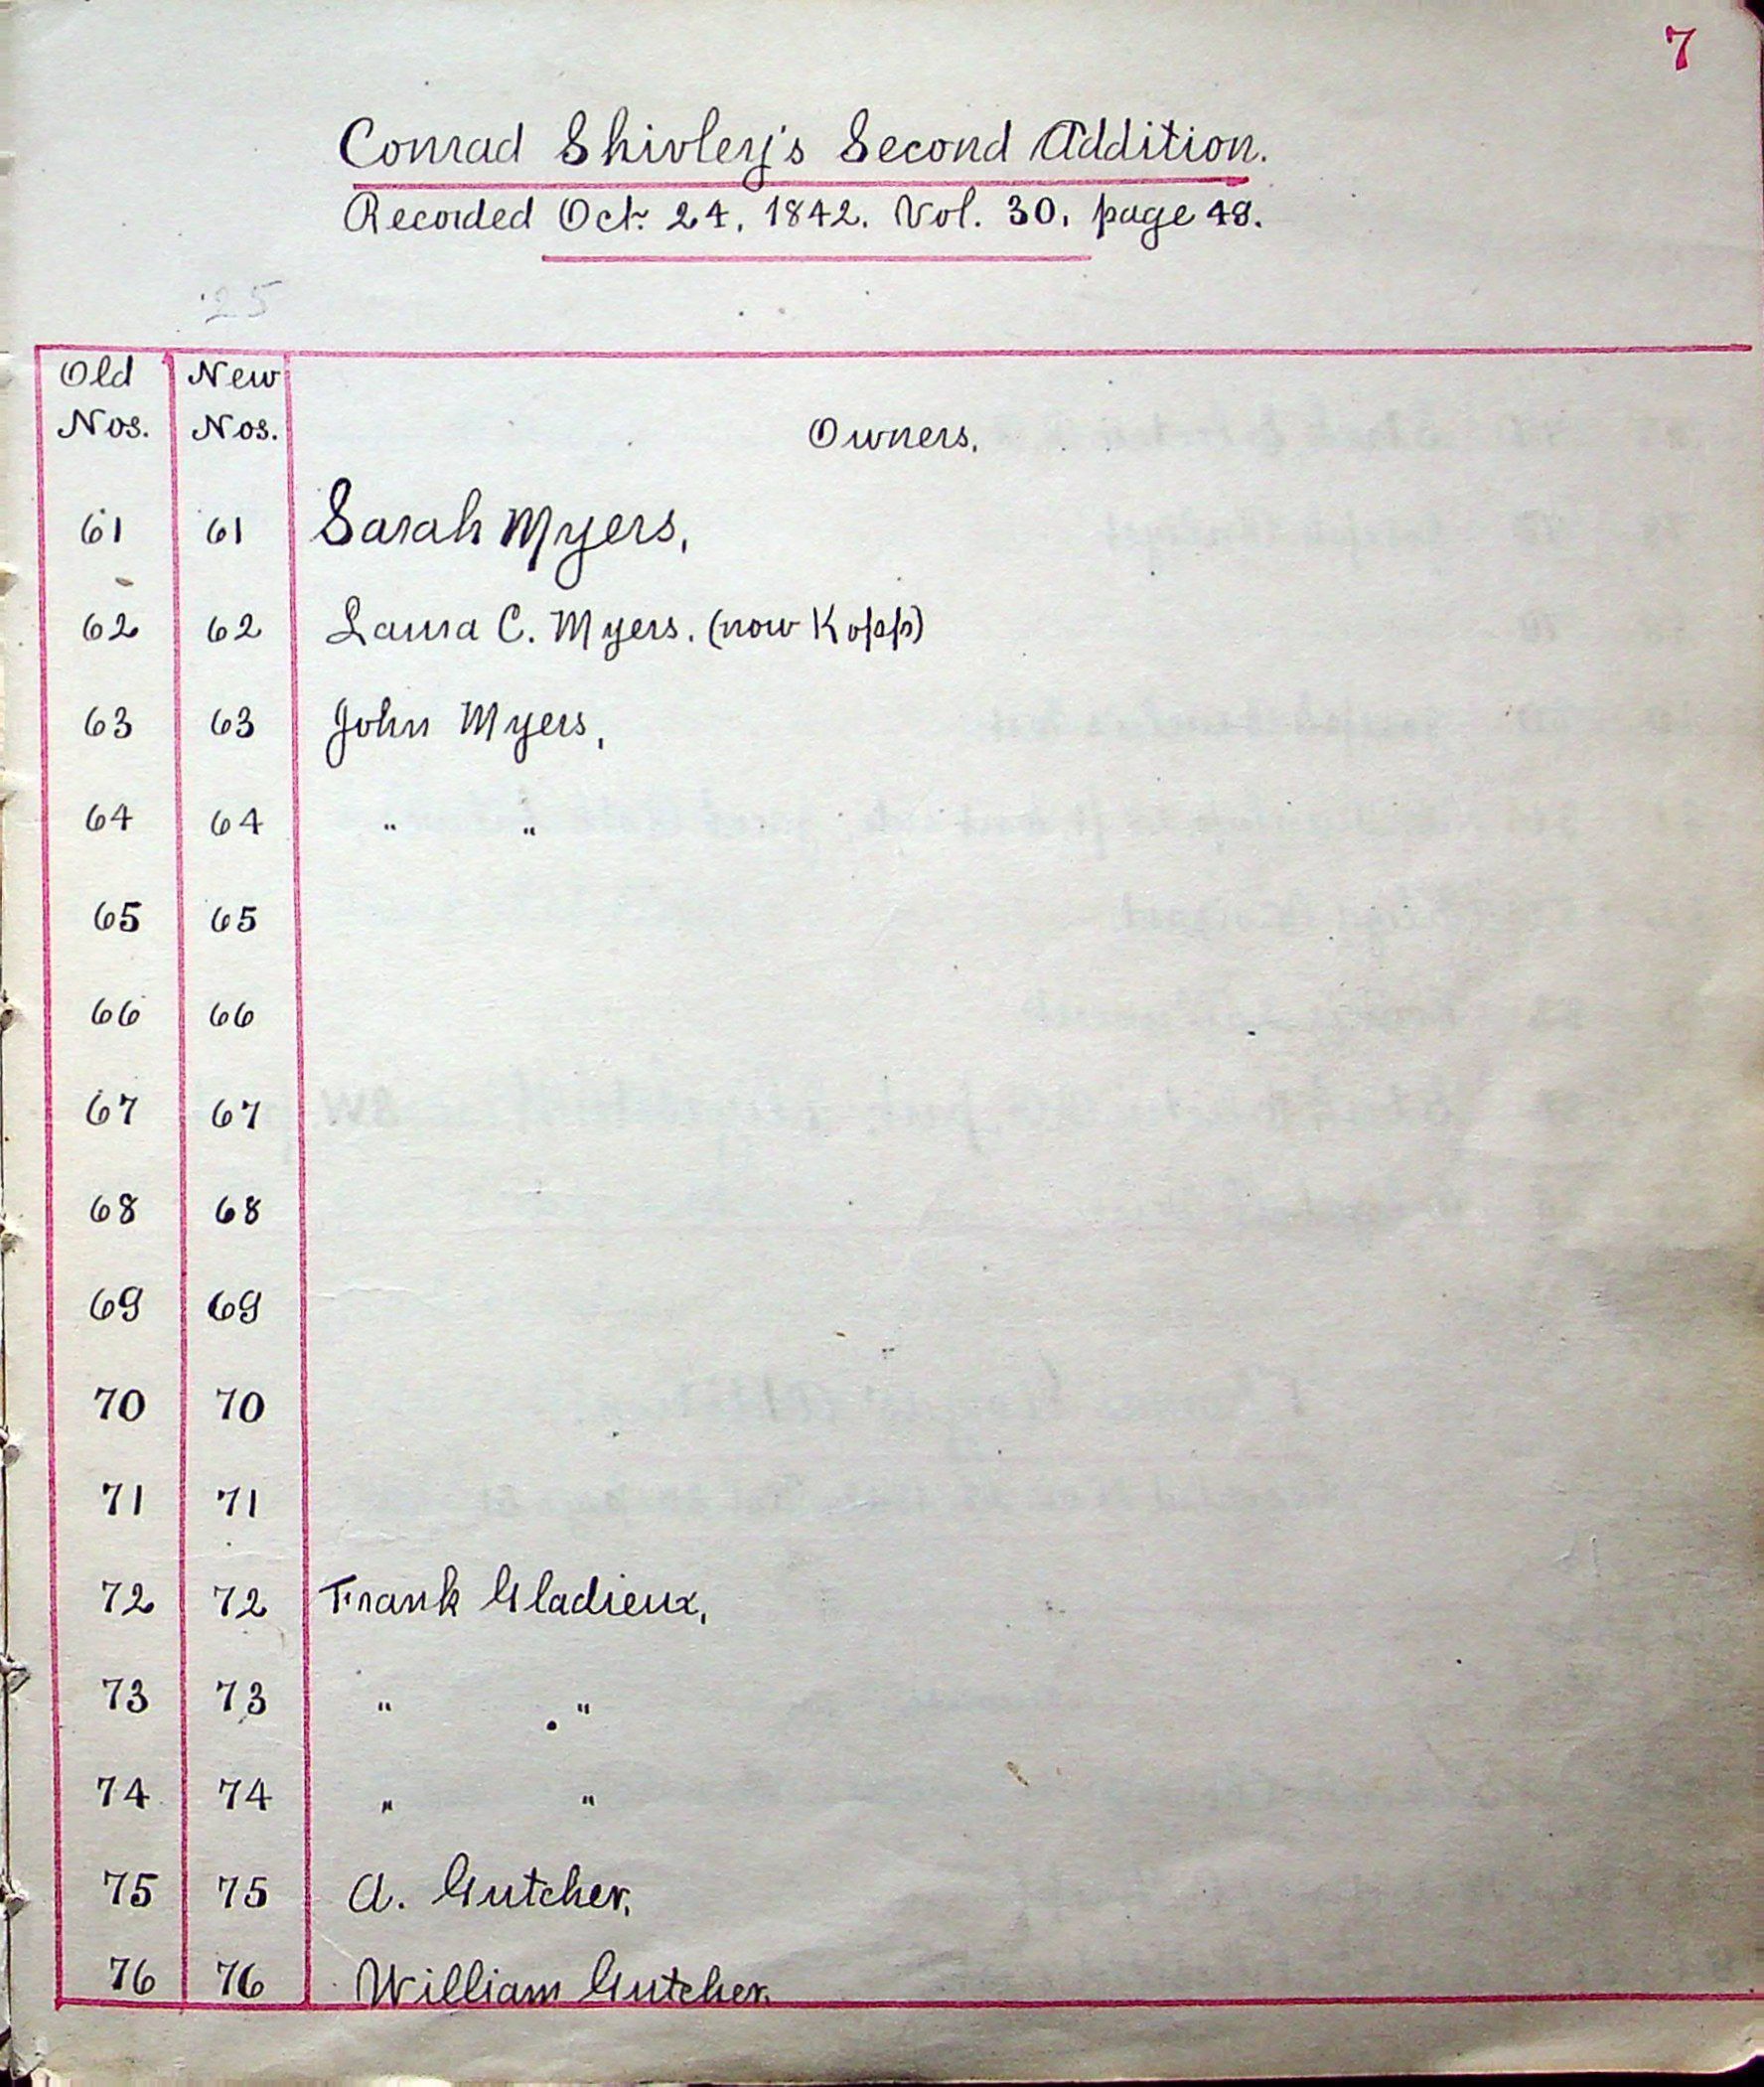 7
Conrad Shivley's Second Addition.
Recorded Oct. 24, 1842. Vol. 30, page 48.
25
Old Nos. New Nos. Owners.
61 61 Sarah Myers,
62 62 Laura C. Myers. (now Kopp)
63 63 John Myers,
64 64 " "
65 65
66 66
67 67
68 68
69 69
70 70
71 71
72 72 Frank Gladieux,
73 73 " "
74 74 " "
75 75 A. Gutcher,
76 76 William Gutcher.